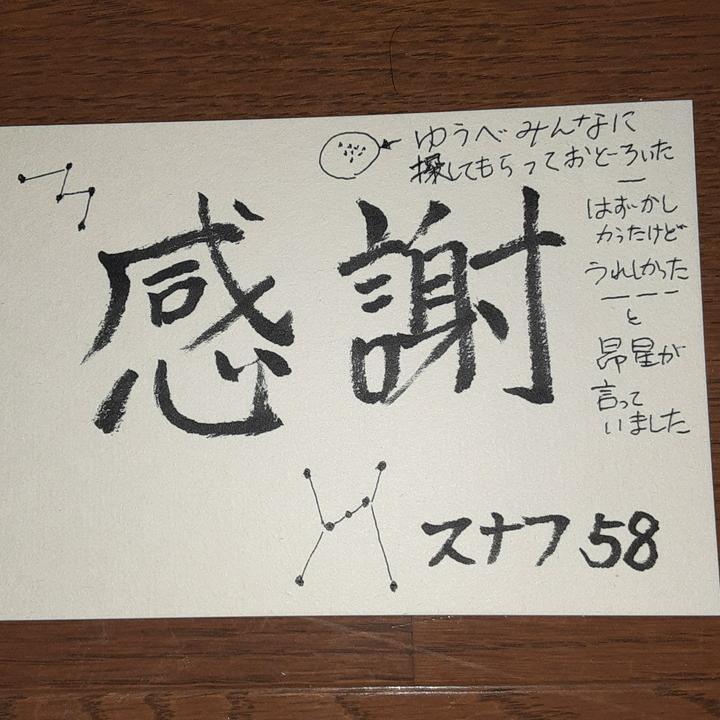 ゆうべみんなに
探してもらっておどろいた
はずかし
かったけど
うれしかった
と
昴星が
言って
いました
感謝
スナフ58